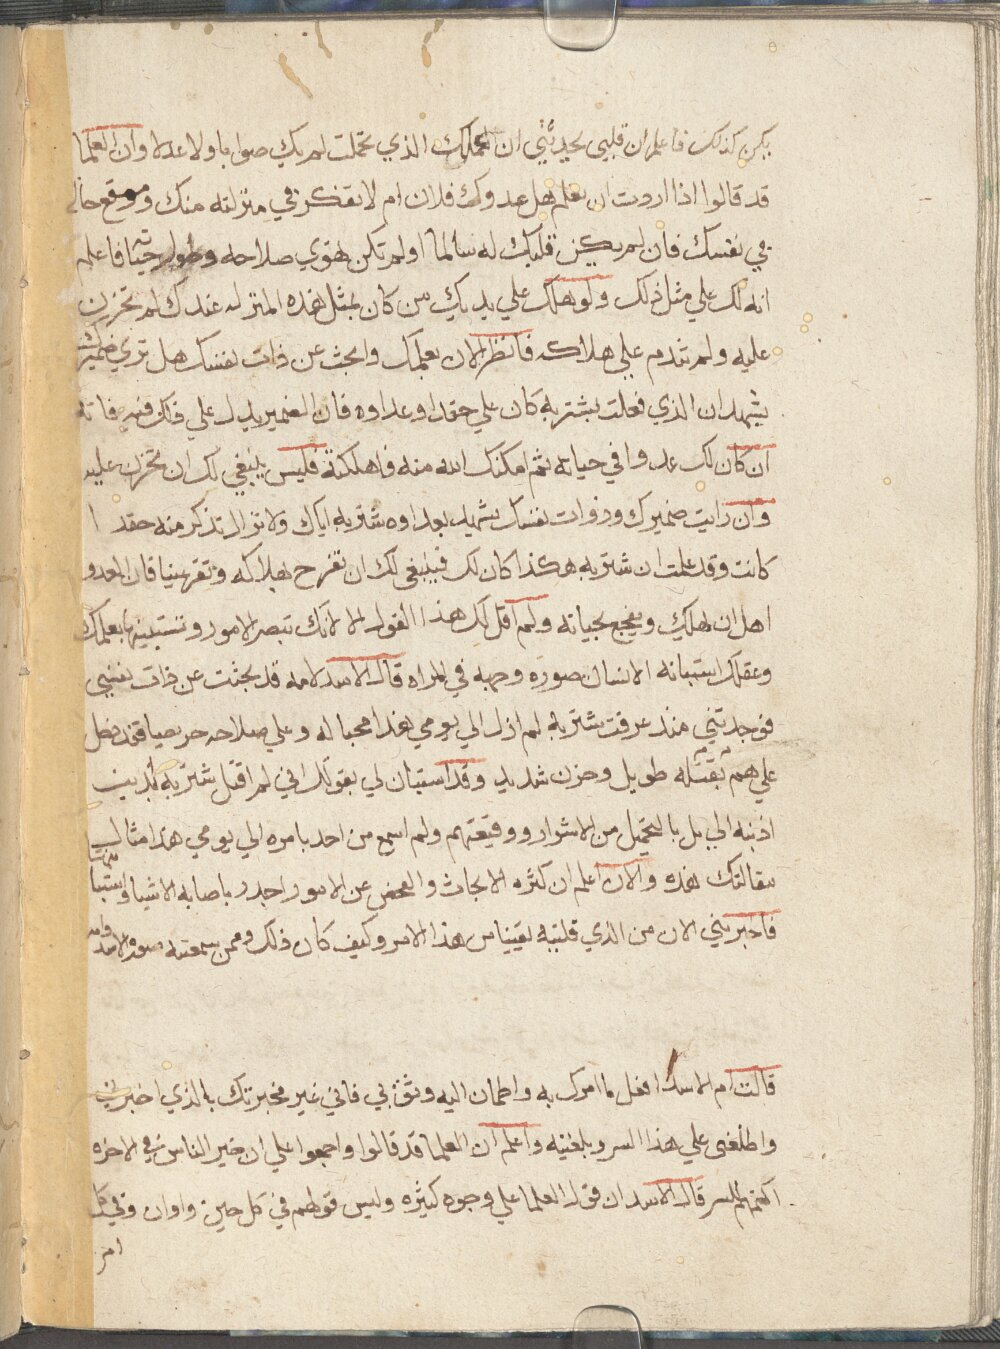 يكن كذلك فاعلم ان قلبي يحدثني ان عملك الذي عملت لم يك صوابا ولا عدلا وان العلما
قد قالوا اذا اردت ان تعلم هل عدوك فلان ام لا تفكر في منزلته منك وموقع حاله
في نفسك فان لم يكن قلبك له سالما او لم تكن تهوي صلاحه وطول حياته فاعلم
انه لك علي مثل ذلك ولو هلك علي يديك من كان بمثل هذه المنزله عندك لم تحزن
عليه ولم تندم علي هلاكه فانظر الان بعملك وابحث عن ذات نفسك هل تري ضميرك
يشهد ان الذي فعلت بشتربه كان علي حقد او عداوه فان الضمير يدل علي ذلك فانه
ان كان لك عدوا في حياته ثم امكنك الله منه فاهلكته فليس ينبغي لك ان تحزن عليه
وان رايت ضميرك وذوات نفسك يشهد بعداوه شتربه اياك ولا تزال تذكر منه حقدا
كانت وقد علمت ان شتربه هكذا كان لك فينبغي لك ان تفرح بهلاكه وتقر عينا فان العدو
اهل ان يهلك ويفجع بحياته ولم اقل لك هذا القول الا لانك تبصر الامور وتستبينها بعملك
وعقلك استبانه الانسان صوره وجهه في المراه قال الاسد لامه قد بحثت عن ذات نفسي
فوجدتني منذ عرفت شتربه لم ازل الي يومي هذا محبا له وعلي صلاحه حريصا فقد دخل
علي هم بقتله طويل وحزن شديد وقد استبان لي بقولك اني لم اقتل شتربه بذنب
اذنبه الي بل بالتحميل من الاشرار ووقيعتهم ولم اسمع من احد بامره الي يومي هذا مثال
مقالتك هذه والان اعلم ان كثره الابحاث والفحص عن الامور اجدر باصابه الاشيا واستبانتها
فاخبريني الان من الذي قلتيه يقينا من هذا الامر وكيف كان ذلك وممن سمعته صوره الاسد وامه
قالت ام الاسد افعل ما امرك به واطمان اليه وثق بي فاني غير مخبرتك بالذي اخبرني
واطلعني علي هذا السر وبلغنيه واعلم ان العلما قد قالوا واجمعوا علي ان خير الناس في الاخره
اكتمهم للسر قال الاسد ان قول العلما علي وجوه كثيره وليس قولهم في كل حين واوان وفي كل
امر